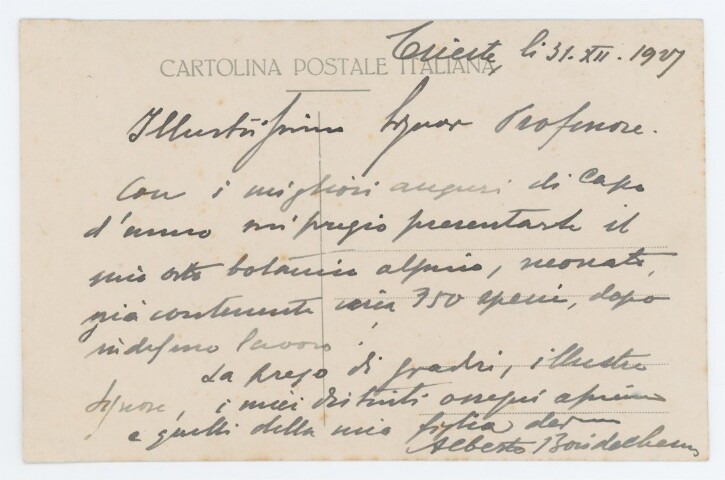 Trieste, li 31. XII. 1927
CARTOLINA POSTALE ITALIANA
Illustrissimo Signor Professore.
Con i migliori auguri di Capo
d'anno mi pregio presentarle il
mio orto botanico alpino, neonato,
già contenente circa 350 specie, dopo
indefesso lavoro!
La prego di gradire, illustre
Signore, i miei distinti ossequi
e quelli della mia figlia
Alberto